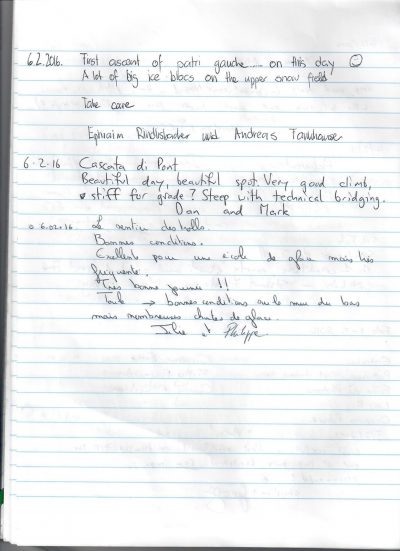 6.2.2016. First ascent of patri gauche..... on this day ☺
A lot of big ice blocs on the upper snow field
Take care
Ephraim und Andreas
6.2.16 Cascata di Pont
Beautiful day, beautiful spot. Very good climb,
stiff for grade? Steep with technical bridging.
Dan and Mark
6.02.16 Le sentier des trolls.
Bonnes conditions.
Excellente pour une école de glace mais très
fréquenté.
Très bonne journée !!
→ bonnes conditions sur le mur du bas
mais nombreuses chutes de glace.
Julie Philippe